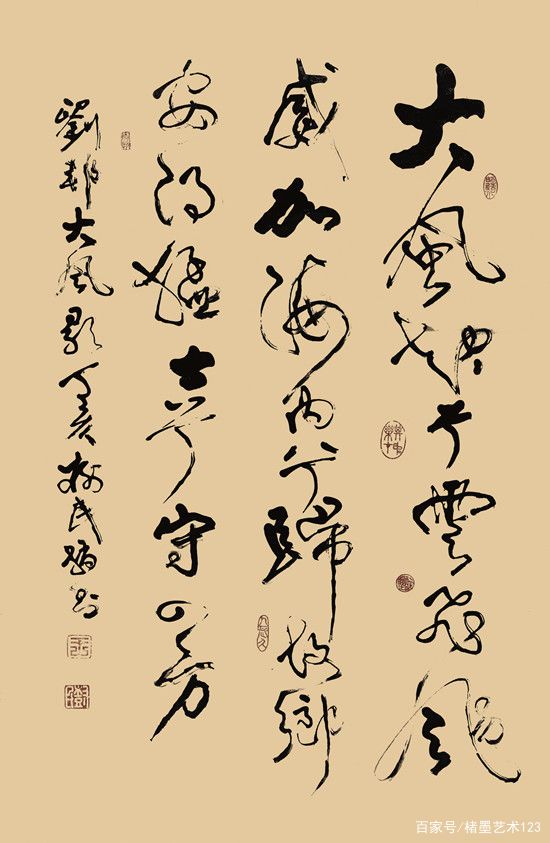 大風起兮雲飛颺
威加海内兮歸故鄉
安得猛士兮守四方
劉邦大風歌丁亥
百家号/楮墨艺术123